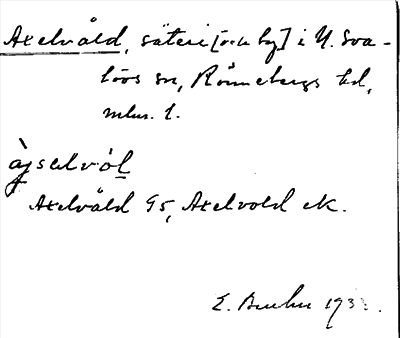 Axelvåld, säteri [och by] i N. Sva-
lövs sn, Rönnebergs hd,
Mlm. l.
àjsəlvòl
Axelvåld G5, Axelvold ek.
E. 193